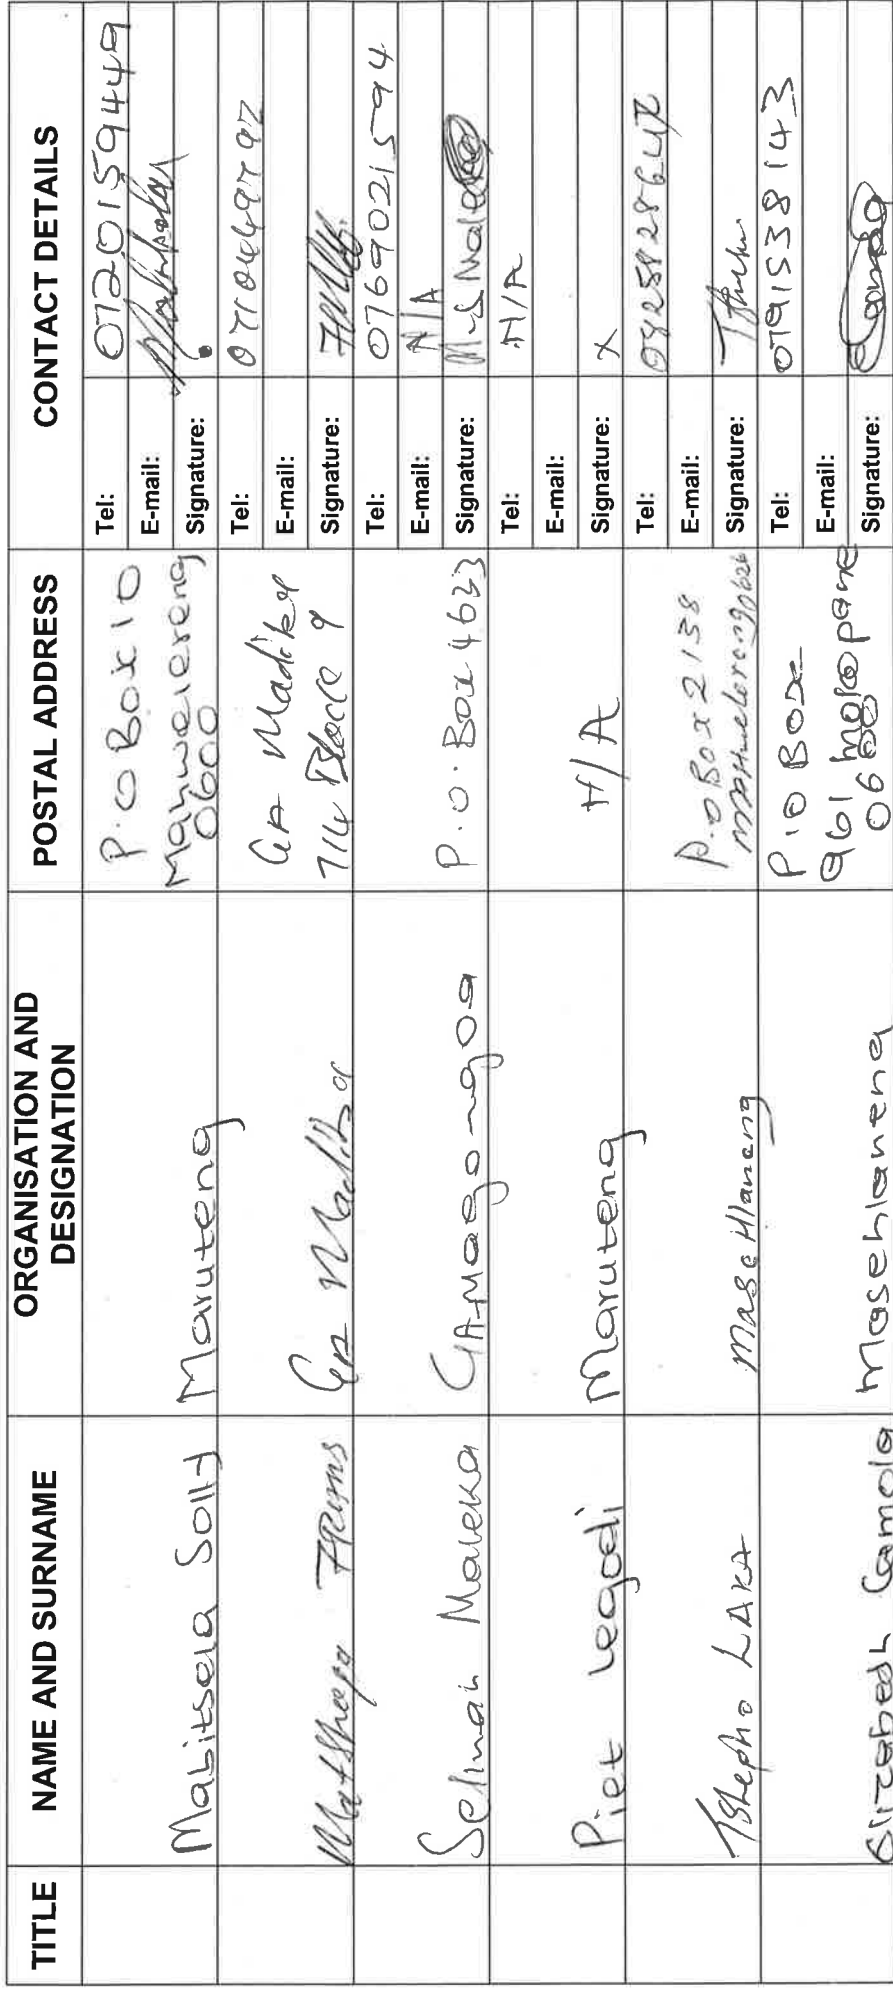 TITLE
NAME AND SURNAME
ORGANISATION AND
DESIGNATION
POSTAL ADDRESS
CONTACT DETAILS
Mabitsela Solly
Maruteng
P.O Box 10
Mahwelereng
0600
Tel: 0720159449
E-mail:
Signature:
GA Madiba
GA Madiba
714 Block 9
Tel:
E-mail:
Signature:
Selinah Maleka
GAMagongoa
P.O. Box 4633
Tel: 0769021594
E-mail: N/A
Signature: M.S Maleka
Piet Legodi
Maruteng
N/A
Tel: N/A
E-mail:
Signature: X
Tshepho LAKA
MaseHlaneng
P.O Box 2138
Tel:
E-mail:
Signature:
Elizabedh Samola
Masehlaneng
P.O Box
961 Mokopane
0600
Tel: 0791538143
E-mail:
Signature: